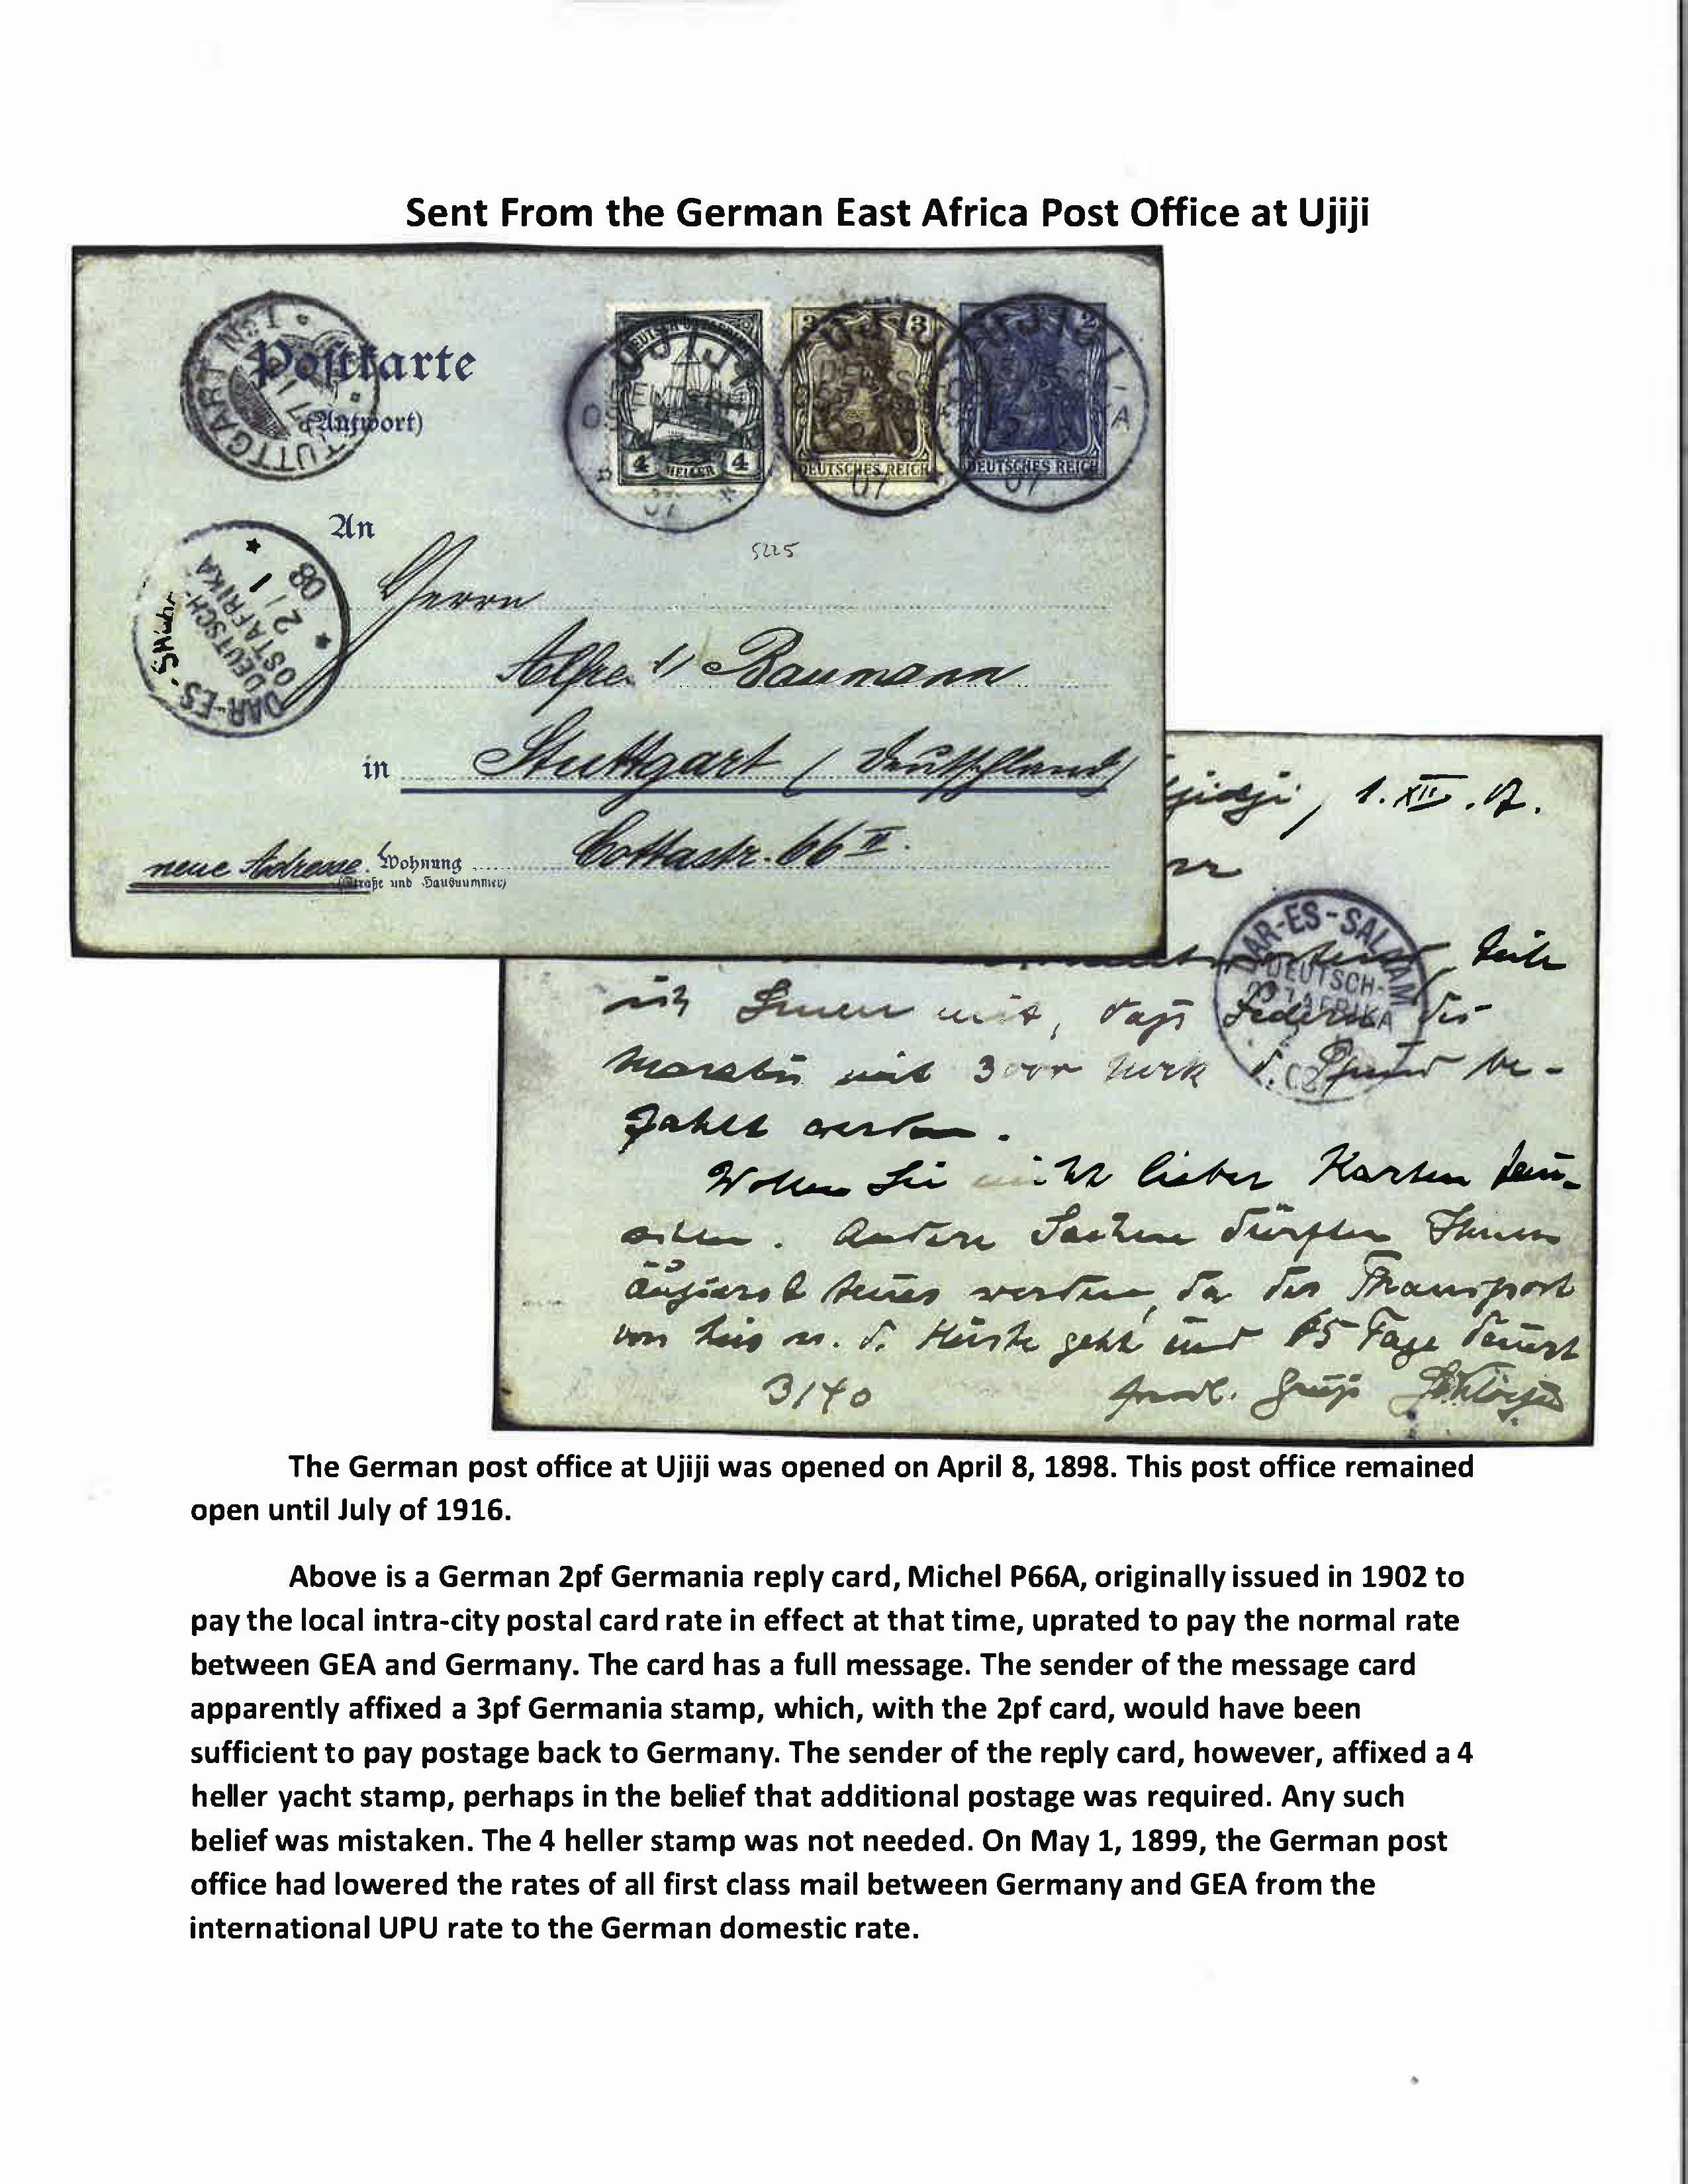 Sent From the German East Africa Post Office at Ujiji
STUTTGART No. 1
Postkarte
(Antwort)
UJIJI
DEUTSCH-OSTAFRIKA
07
DEUTSCH-OSTAFRIKA
4 HELLER 4
3 3
DEUTSCHES REICH
2
DEUTSCHES REICH
5225
An
Herrn
DAR-ES-
DEUTSCH-
OSTAFRIKA
2/1
08
Alfred Baumann
in Stuttgart (Deutschland)
neue Adresse. Wohnung Cottastr. 66 II.
(Straße und Hausnummer)
1. XII. 07.
DAR-ES-SALAM
DEUTSCH-
teile
ich Ihnen mit, dass die
mit 3 Mark d. be-
zahlt werden.
Wollen Sie nicht lieber Karten tau-
schen. Andere Sachen dürften Ihnen
äusserst teuer werden, da der Transport
von hier n. d. Küste geht und 65 Tage dauert
3/40 Gruss
The German post office at Ujiji was opened on April 8, 1898. This post office remained
open until July of 1916.
Above is a German 2pf Germania reply card, Michel P66A, originally issued in 1902 to
pay the local intra-city postal card rate in effect at that time, uprated to pay the normal rate
between GEA and Germany. The card has a full message. The sender of the message card
apparently affixed a 3pf Germania stamp, which, with the 2pf card, would have been
sufficient to pay postage back to Germany. The sender of the reply card, however, affixed a 4
heller yacht stamp, perhaps in the belief that additional postage was required. Any such
belief was mistaken. The 4 heller stamp was not needed. On May 1, 1899, the German post
office had lowered the rates of all first class mail between Germany and GEA from the
international UPU rate to the German domestic rate.